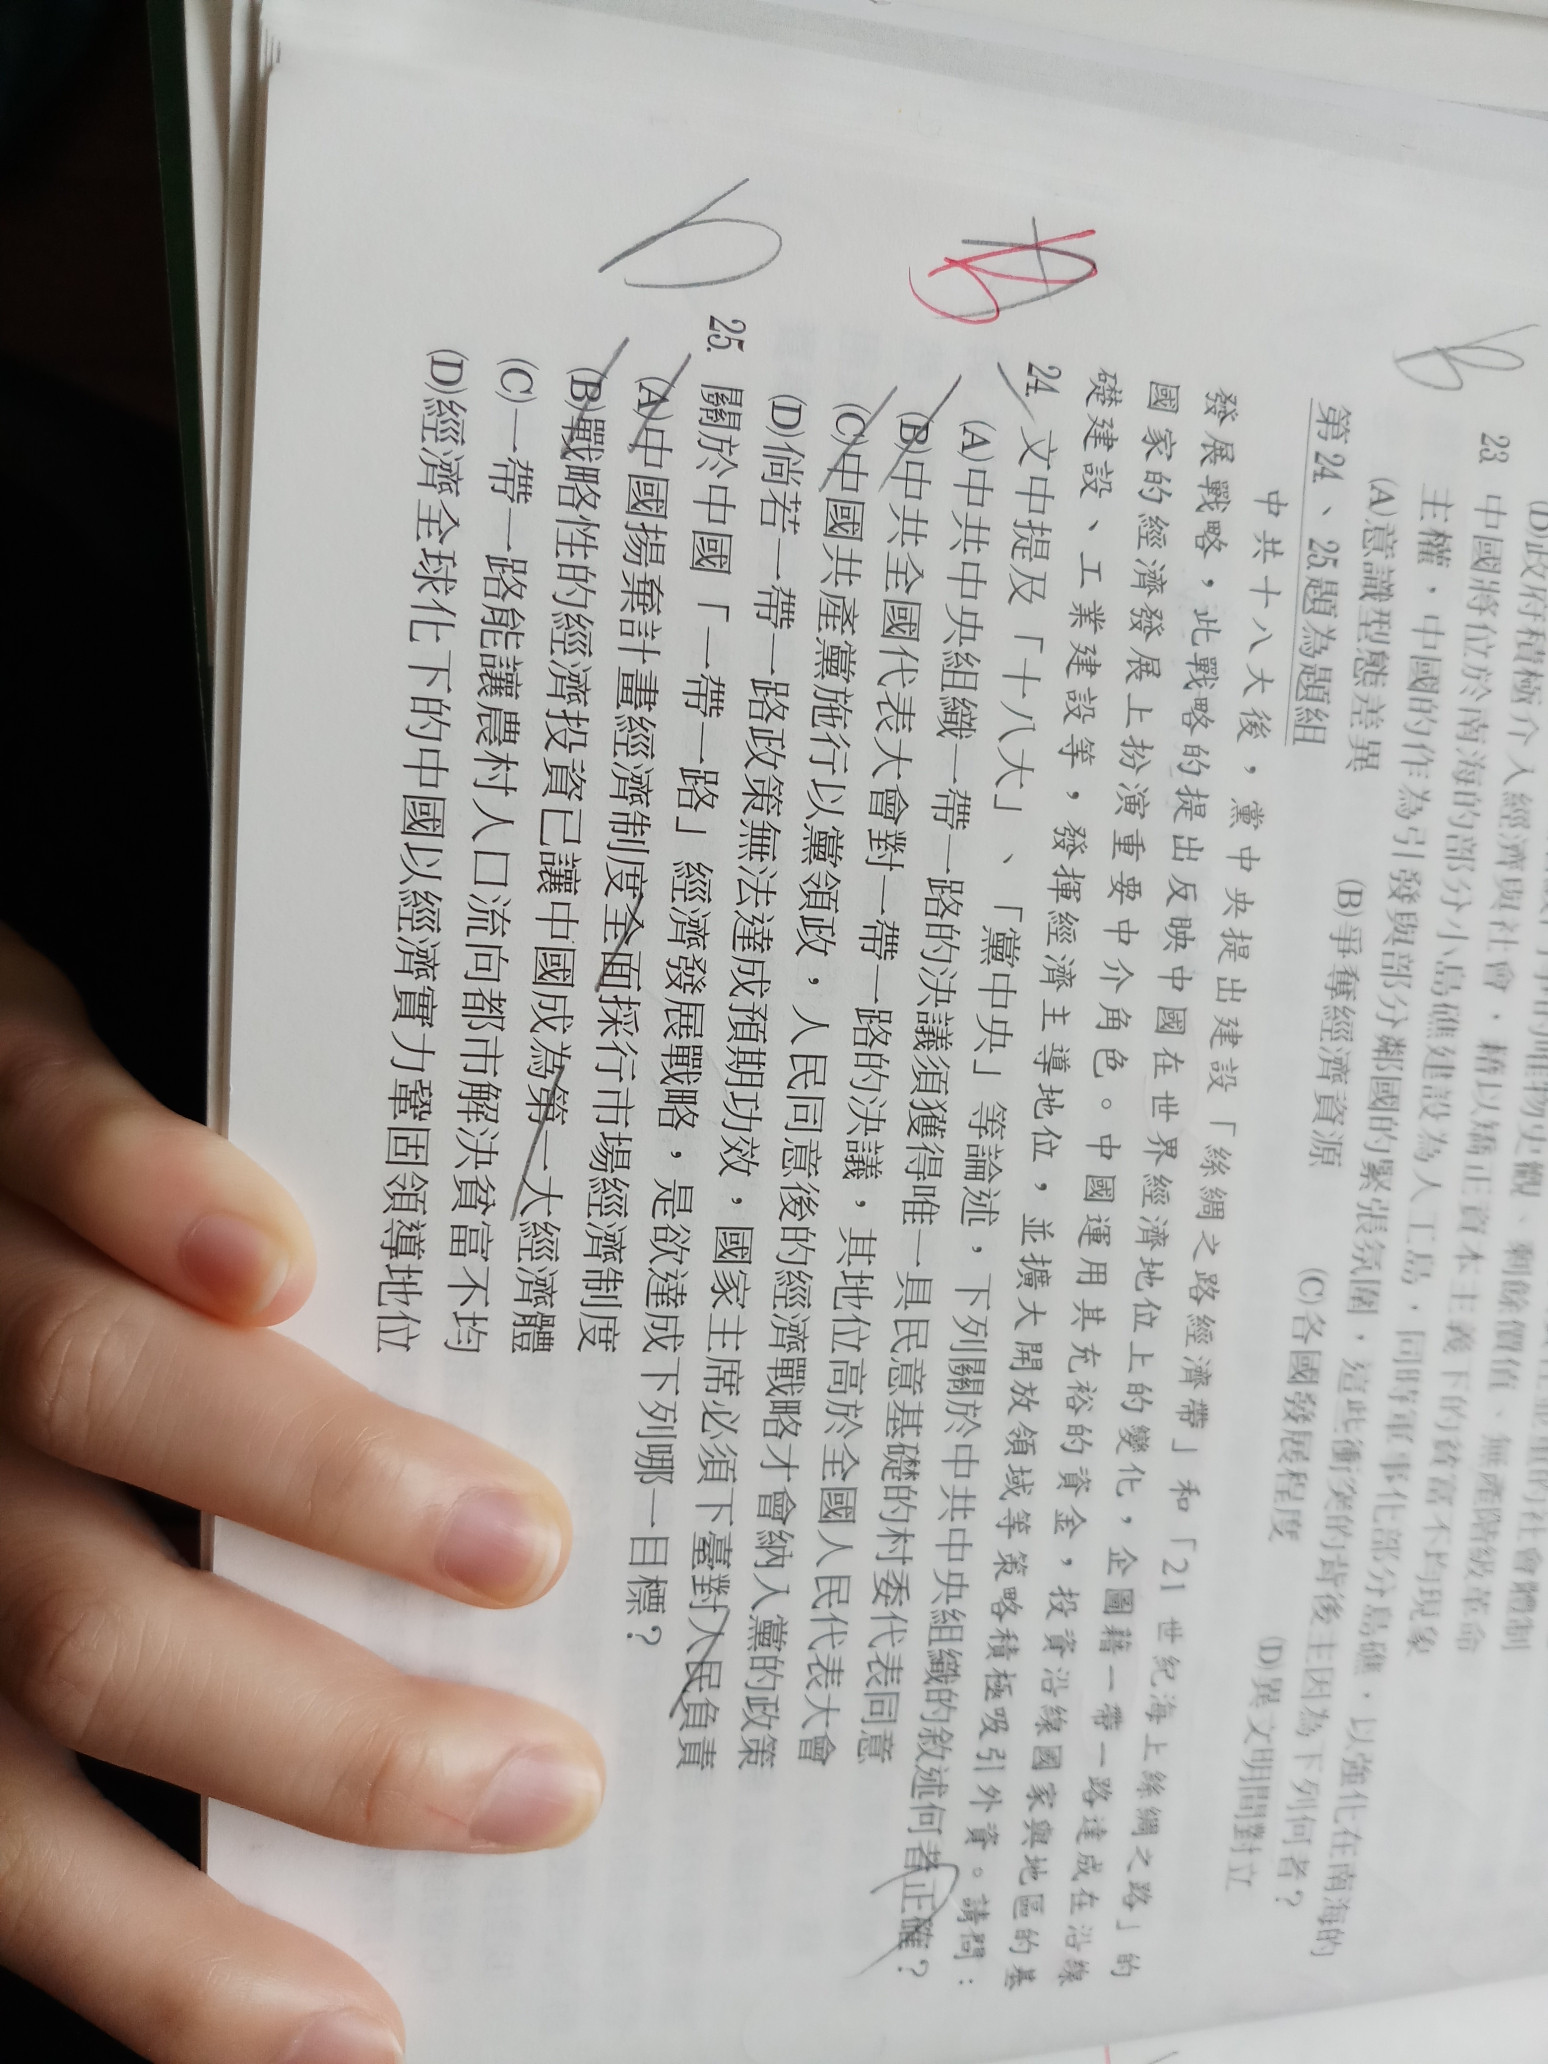 (D)政府積極介入經濟與社會，藉以矯正資本主義下的貧富不均現象
B
23 中國將位於南海的部分小島礁建設為人工島，同時軍事化部分島礁，以強化在南海的
主權，中國的作為引發與部分鄰國的緊張氛圍，這些衝突的背後主因為下列何者？
(A)意識型態差異 (B)爭奪經濟資源 (C)各國發展程度 (D)異文明間對立
第 24、25 題為題組
中共十八大後，黨中央提出建設「絲綢之路經濟帶」和「21 世紀海上絲綢之路」的
發展戰略，此戰略的提出反映中國在世界經濟地位上的變化，企圖藉一帶一路達成在沿線
國家的經濟發展上扮演重要中介角色。中國運用其充裕的資金，投資沿線國家與地區的基
礎建設、工業建設等，發揮經濟主導地位，並擴大開放領域等策略積極吸引外資。請問：
24 文中提及「十八大」、「黨中央」等論述，下列關於中共中央組織的敘述何者正確？
(A)中共中央組織一帶一路的決議須獲得唯一具民意基礎的村委代表同意
(B)中共全國代表大會對一帶一路的決議，其地位高於全國人民代表大會
(C)中國共產黨施行以黨領政，人民同意後的經濟戰略才會納入黨的政策
(D)倘若一帶一路政策無法達成預期功效，國家主席必須下臺對人民負責
D
25. 關於中國「一帶一路」經濟發展戰略，是欲達成下列哪一目標？
(A)中國揚棄計畫經濟制度全面採行市場經濟制度
(B)戰略性的經濟投資已讓中國成為第一大經濟體
(C)一帶一路能讓農村人口流向都市解決貧富不均
(D)經濟全球化下的中國以經濟實力鞏固領導地位